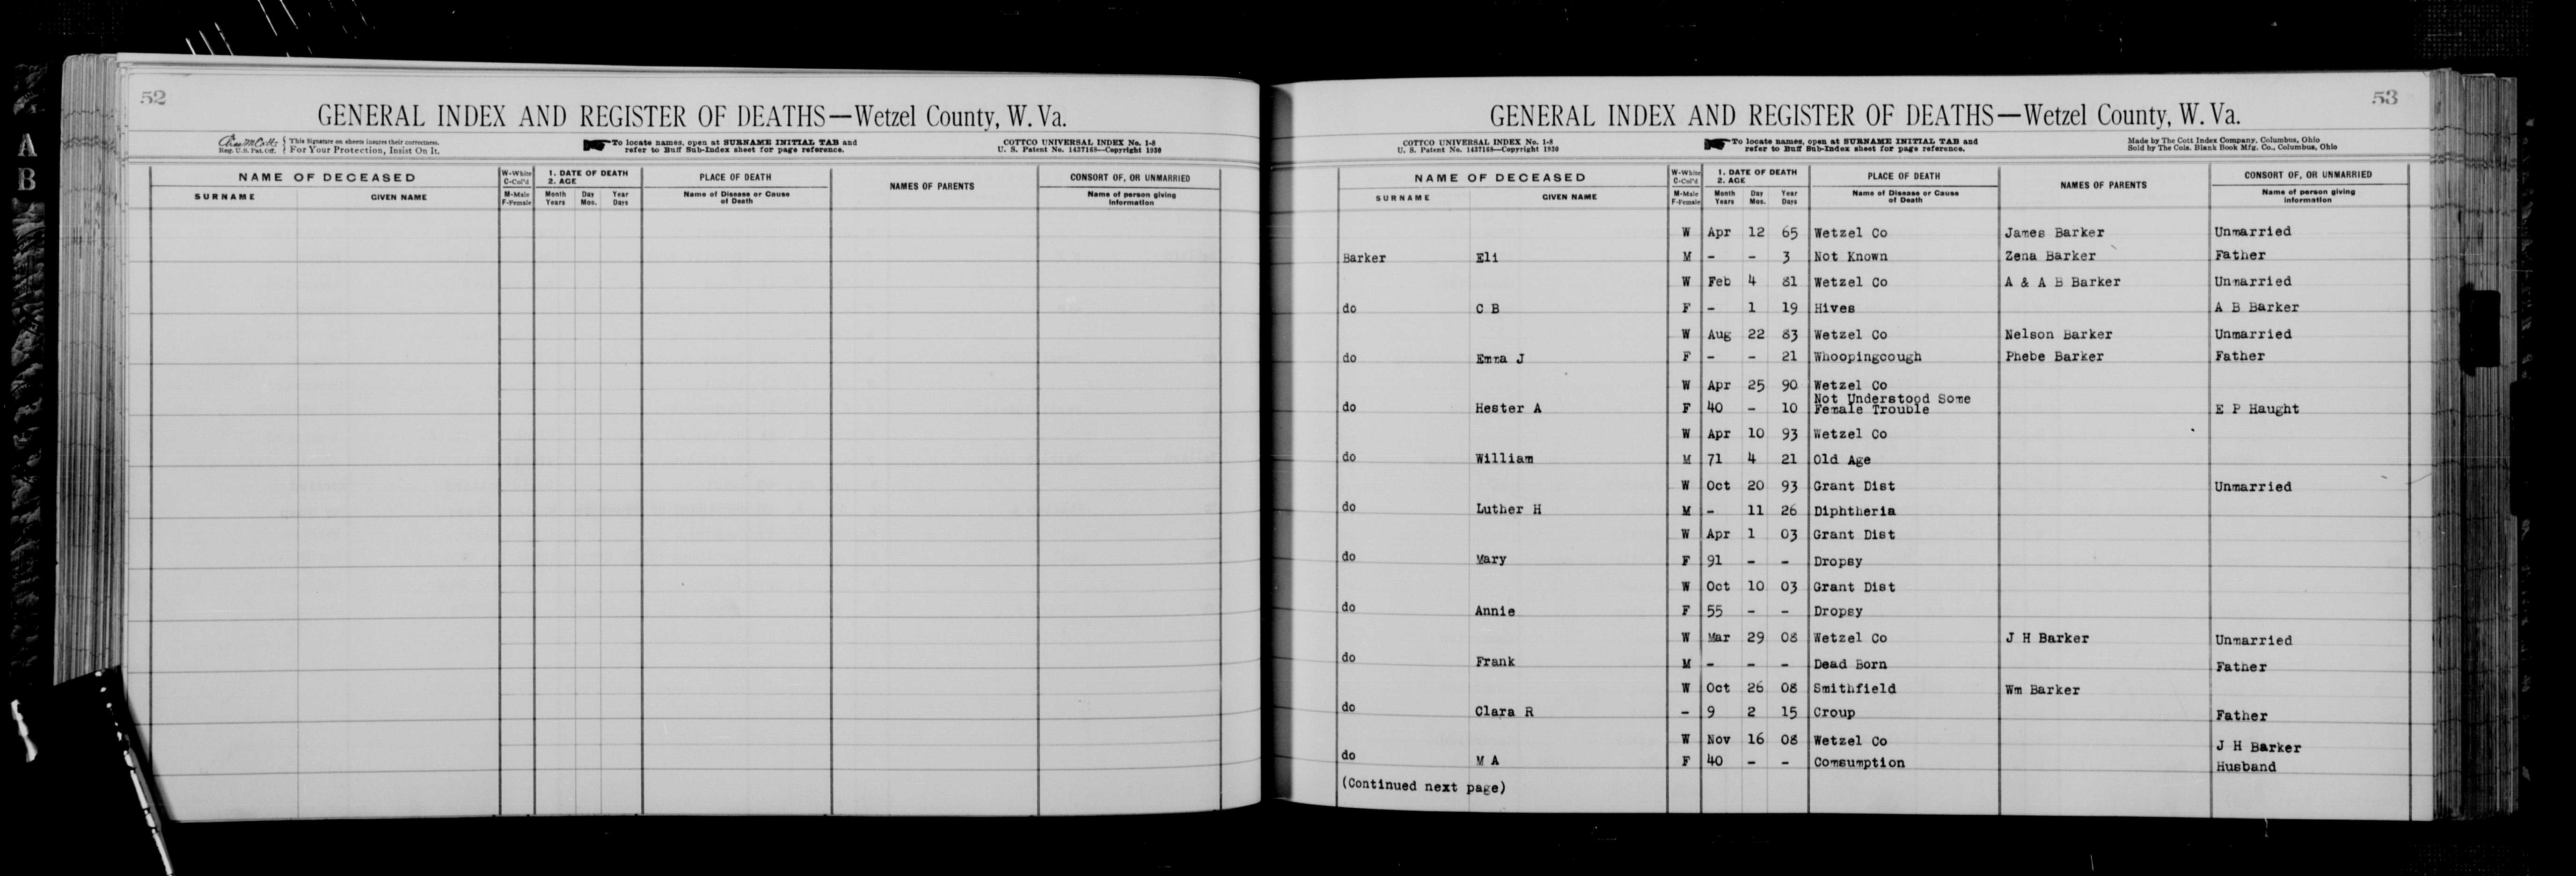 52
GENERAL INDEX AND REGISTER OF DEATHS—Wetzel County, W. Va.
Reg. U.S. Pat. Off. { This Signature on sheets insures their correctness. For Your Protection, Insist On It.
To locate names, open at SURNAME INITIAL TAB and refer to Buff Sub-Index sheet for page reference.
COTTCO UNIVERSAL INDEX No. 1-8
U. S. Patent No. 1437168—Copyright 1930
NAME OF DECEASED W-White C-Col'd 1. DATE OF DEATH 2. AGE PLACE OF DEATH NAMES OF PARENTS CONSORT OF, OR UNMARRIED
SURNAME GIVEN NAME M-Male F-Female Month Years Day Mos. Year Days Name of Disease or Cause of Death Name of person giving information
53
GENERAL INDEX AND REGISTER OF DEATHS—Wetzel County, W. Va.
COTTCO UNIVERSAL INDEX No. 1-8
U. S. Patent No. 1437168—Copyright 1930
To locate names, open at SURNAME INITIAL TAB and refer to Buff Sub-Index sheet for page reference.
Made by The Cott Index Company, Columbus, Ohio
Sold by The Cols. Blank Book Mfg. Co., Columbus, Ohio
NAME OF DECEASED W-White C-Col'd 1. DATE OF DEATH 2. AGE PLACE OF DEATH NAMES OF PARENTS CONSORT OF, OR UNMARRIED
SURNAME GIVEN NAME M-Male F-Female Month Years Day Mos. Year Days Name of Disease or Cause of Death Name of person giving information
W Apr 12 65 Wetzel Co James Barker Unmarried
Barker Eli M - - 3 Not Known Zena Barker Father
W Feb 4 81 Wetzel Co A & A B Barker Unmarried
do C B F - 1 19 Hives A B Barker
W Aug 22 83 Wetzel Co Nelson Barker Unmarried
do Emma J F - - 21 Whoopingcough Phebe Barker Father
W Apr 25 90 Wetzel Co
Not Understood Some
do Hester A F 40 - 10 Female Trouble E P Haught
W Apr 10 93 Wetzel Co
do William M 71 4 21 Old Age
W Oct 20 93 Grant Dist Unmarried
do Luther H M - 11 26 Diphtheria
W Apr 1 03 Grant Dist
do Mary F 91 - - Dropsy
W Oct 10 03 Grant Dist
do Annie F 55 - - Dropsy
W Mar 29 08 Wetzel Co J H Barker Unmarried
do Frank M - - - Dead Born Father
W Oct 26 08 Smithfield Wm Barker
do Clara R - 9 2 15 Croup Father
W Nov 16 08 Wetzel Co J H Barker
do M A F 40 - - Comsumption Husband
(Continued next page)
A
B